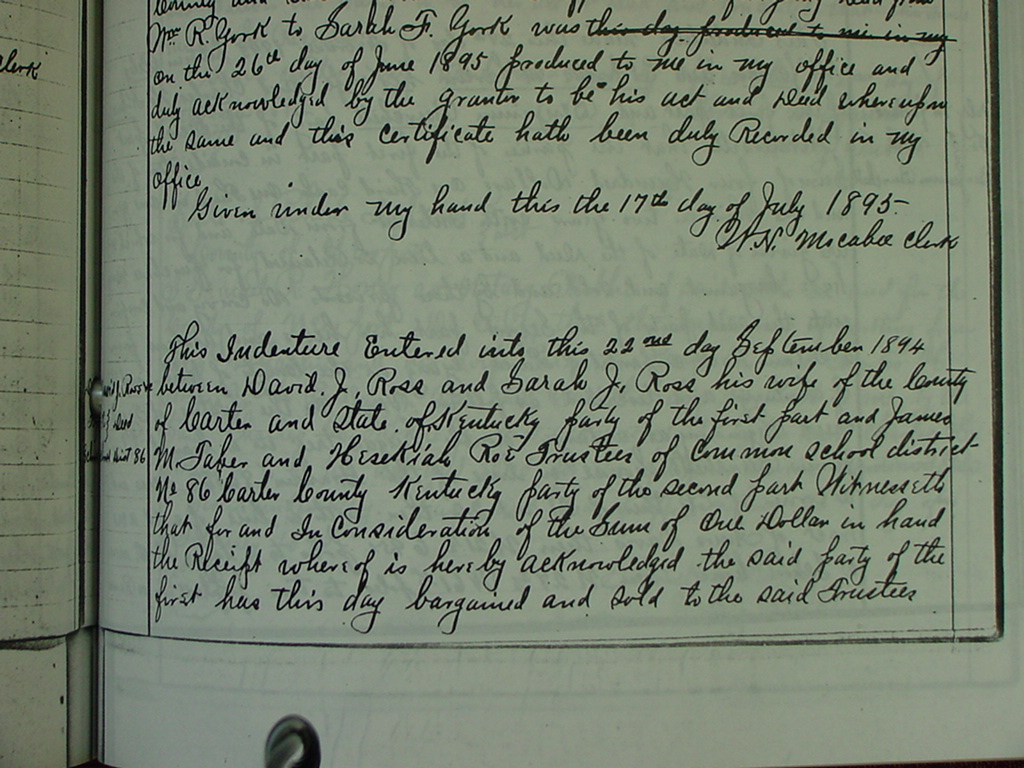 Wm R. Gork to Sarah F. Gork was this day produced to me in my
on the 26th day of June 1895 produced to me in my office and
duly acknowledged by the grantor to be his act and Deed whereupon
the same and this certificate hath been duly Recorded in my
office
Given under my hand this the 17th day of July 1895.
W.N. Mccabee Clerk
Clerk
This Indenture Entered into this 22nd day September 1894
between David. J, Ross and Sarah J, Ross his wife of the County
of Carter and State of Kentucky party of the first part and James
M. Taber and Hesekiah Roe Trustees of Common school district
No 86 Carter County Kentucky party of the second part Witnesseth
that for and In Consideration of the Sum of One Dollar in hand
the Receipt whereof is hereby acknowledged the said party of the
first has this day bargained and sold to the said Trustees
J. Ross
Deed
Dist 86